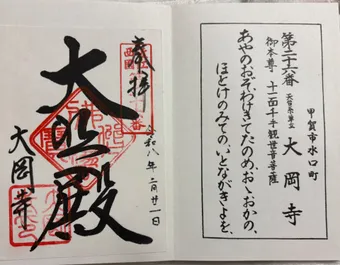 甲賀市水口町
第二十六番
大岡寺
御本尊 十一面千手観世音菩薩
あやのおぞわけきてたのめ、おゝおかの、
ほとけのみての、いとながきよを、
奉拝
令和八年二月廿一日
大悲殿
大岡寺